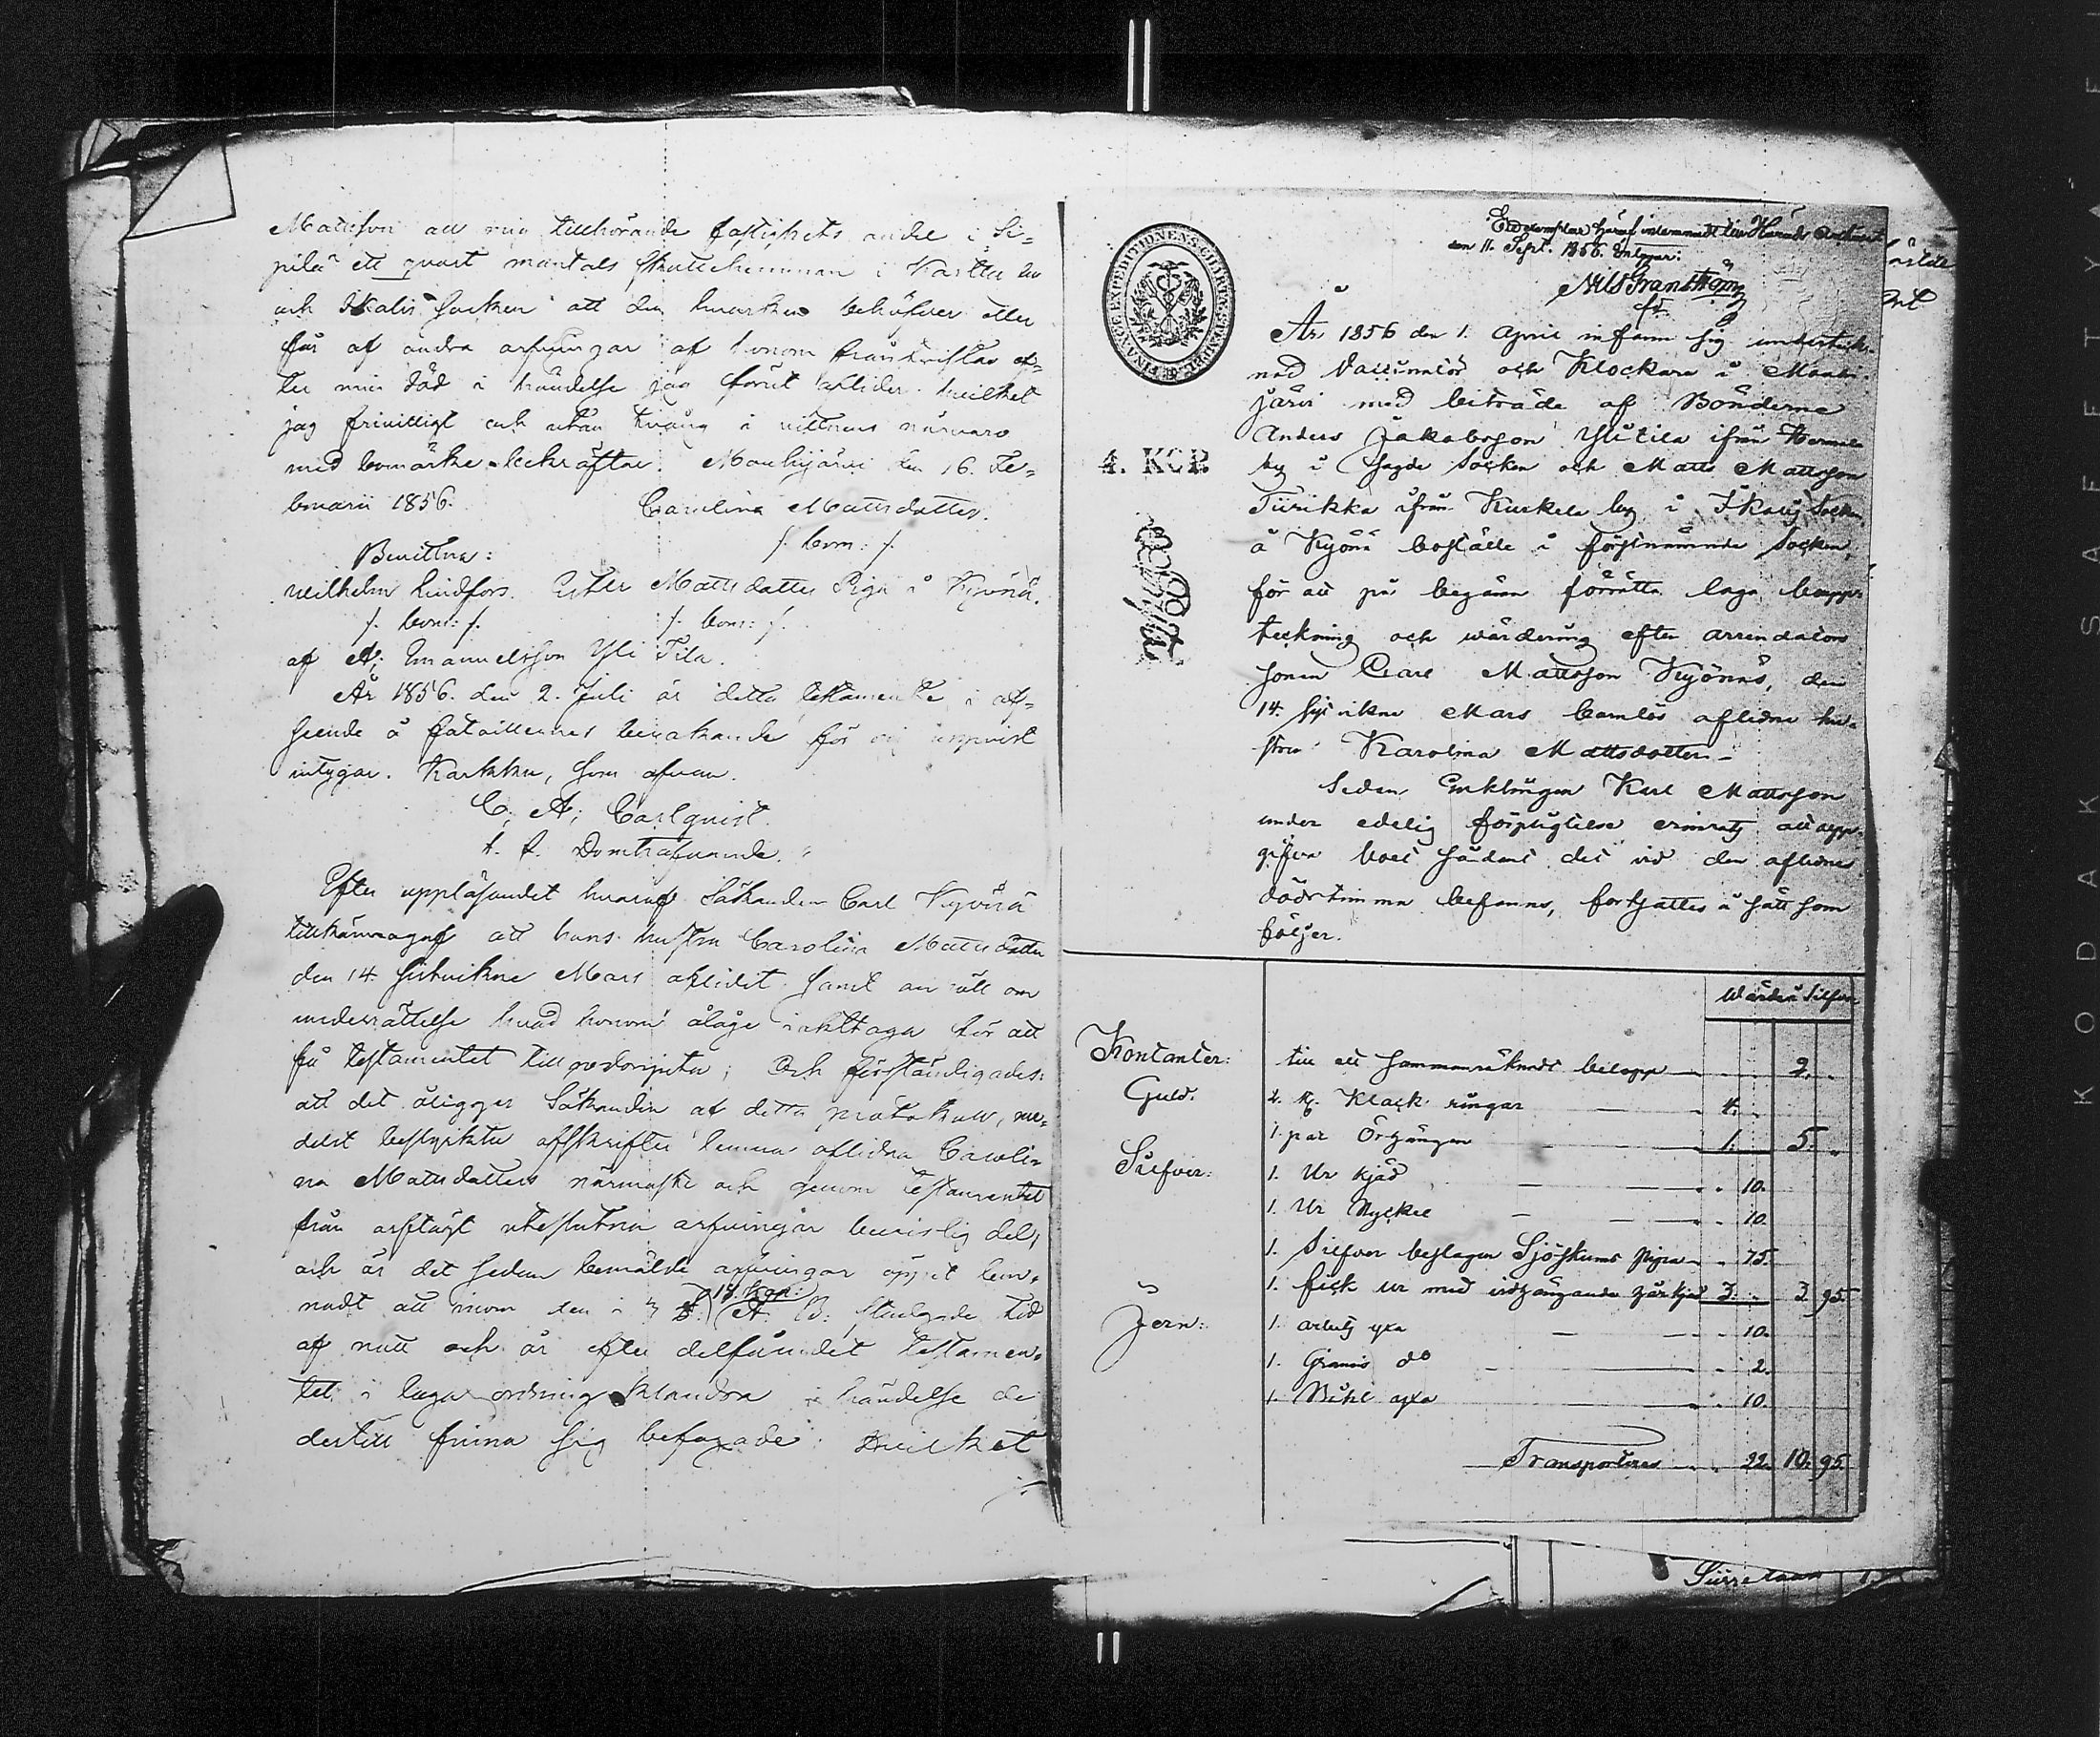 Mattsson all min tillhörande fastighets andel i Si-
pilä ett quart mantals skattehemman i Karttu by
och Ikalis Socken att den hvarken behöfver eller
får af andra arfvingar af honom fråntvistas ef-
ter min död i händelse jag förut aflider. hvilket
jag frivilligt och utan tvång i vittnens närvaro
med bomärke bekräftar. Mouhijärvi den 16. Fe-
bruarii 1856. Carolina Mattsdotter.
/. bom: /.
Bevittna:
Wilhelm Lindfors. Ester Mattsdotter Piga i Kyönä.
/. bom: /. /. bom: /.
af A; Emanuelsson Yli Tila.
År 1856. den 2. Juli är detta testamente i af-
seende å fataliernes bevakande för mig uppvist
intygar. Karkku, som ofvan.
C; A; Carlqvist.
t. f. Domhafvande.
Efter uppläsandet hvaraf Sökanden Carl Kyönä
tillkännagaf att hans hustru Carolina Mattsdotter
den 14. sistvikne Mars aflidit samt anhöll om
underrättelse hvad honom ålåge iakttaga för att
få testamentet till godonjuta; Och förständigades:
att det åligger Sökanden af detta protokoll, me-
delst bestyrkta afskrifter lemna aflidna Caroli-
na Mattsdotters närmaste och genom testamentet
från arftägt uteslutna arfvingar bevislig del,
och är det sedan bemälde arfvingar öppet lem-
nadt att inom den i 18. Kap: Ä. B: stadgade tid
af natt och år efter delfåendet testamen-
tet i laga ordning klandra i händelse de
dertill finna sig befogade. Hvilket
Ett exemplar häraf inlemnadt till Härads Rätten
den 11. Sept. 1856. Intygar:
Nils Granström
FINANCE EXPEDITIONENS CHARTÆ STÆMPEL
4. KOP.
År 1856 den 1. April infann sig underteck-
nad Vaccinatör och Klockare i Mouhi-
järvi med biträde af Bönderne
Anders Jakobsson Ylitila ifrån
by i sagde Socken och Matts Mattsson
Tiirikka ifrån Kurkela by i Ikalis Socken
å Kyönä boställe i förstnämnde Socken,
för att på begäran förrätta laga boupp-
teckning och wärdering efter arrendators
sonen Carl Mattsson Kyönäs, den
14. sistvikne Mars barnlös aflidne hu-
stru Karolina Mattsdotter.
Sedan Enklingen Karl Mattsson
under edelig förpligtelse erinrats att upp-
gifva boet sådant det vid den aflidnes
dödstimma befanns, fortsattes å sätt som
följer.
Wärde i Silfver
Kontanter: till ett sammanräknadt belopp 2.
Guld: 2. st. Klack ringar 4.
1. par Örhängen 1. 5.
Silfver: 1. Ur kjäd 10.
1. Ur Nyckel 10.
1. Silfver beslagen Sjöskums pipa 75.
1. fick ur med vidhängande kjäd 3. 3. 95.
Jern: 1. arbets yxa 10.
1. do 2.
1. Bihl yxa 10.
Transporteras 22. 10. 95.